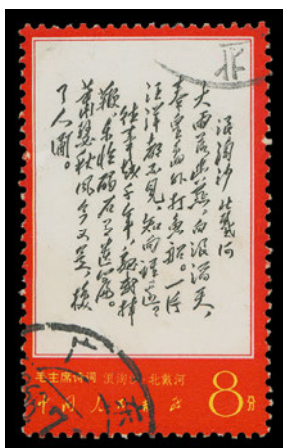 浪淘沙 北戴河
大雨落幽燕，白浪滔天，
秦皇島外打魚船。一片
汪洋都不見，知向誰邊？
往事越千年，魏武揮
鞭，東臨碣石有遺篇。
蕭瑟秋風今又是，換
了人間。
毛主席诗词 浪淘沙 北戴河
中国人民邮政 8分